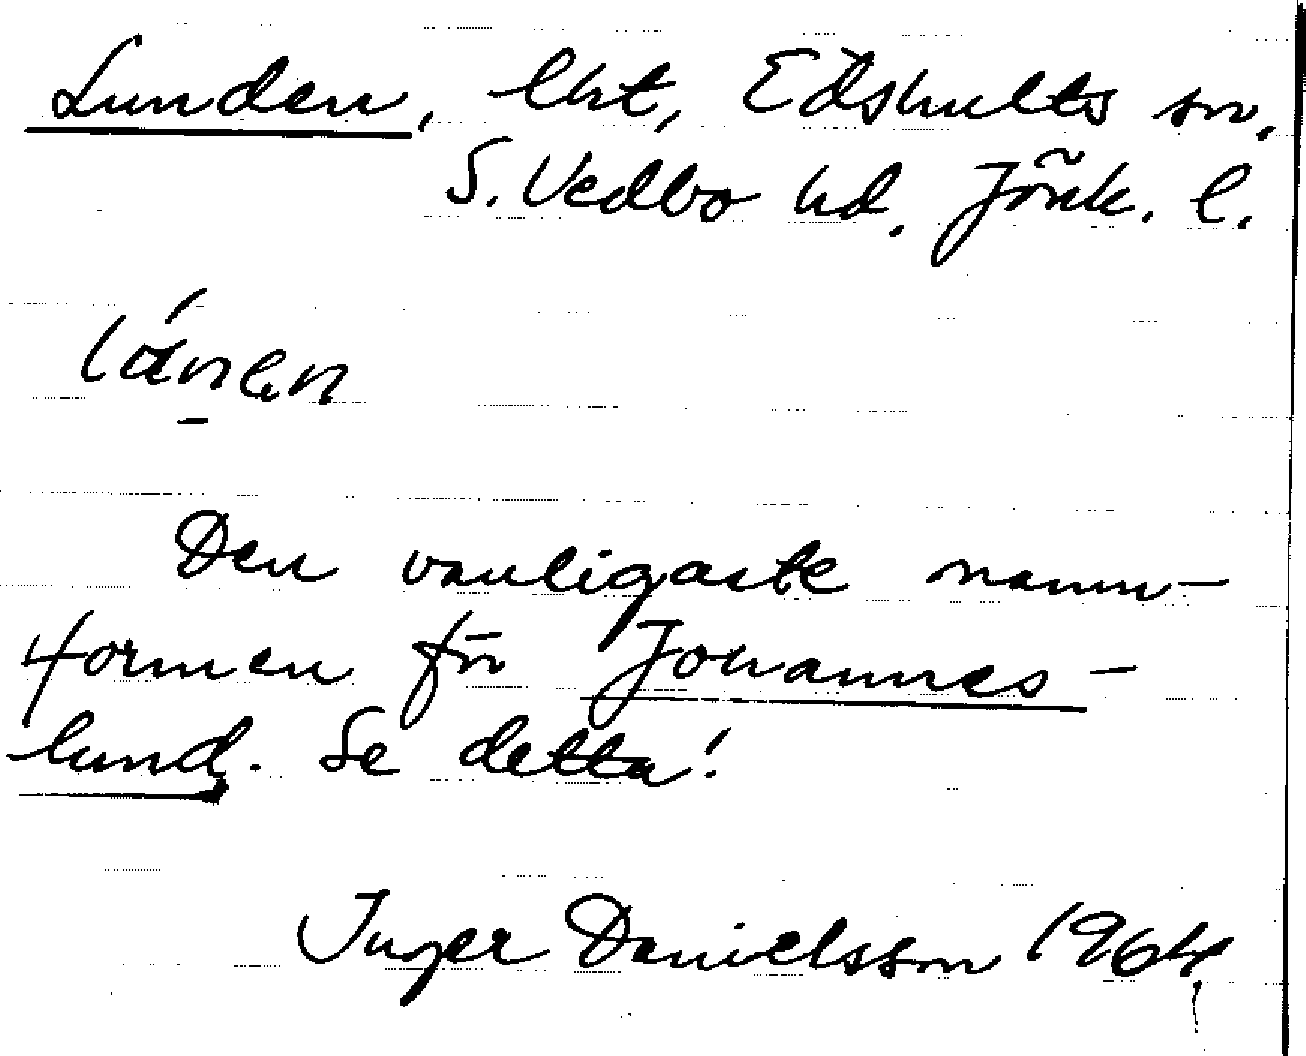 Lunden, lht, Edshults sn,
S. Vedbo hd, Jönk. l.
Den vanligaste namn-
formen för Johannes-
lund. Se detta!
Inger Danielsson 1964